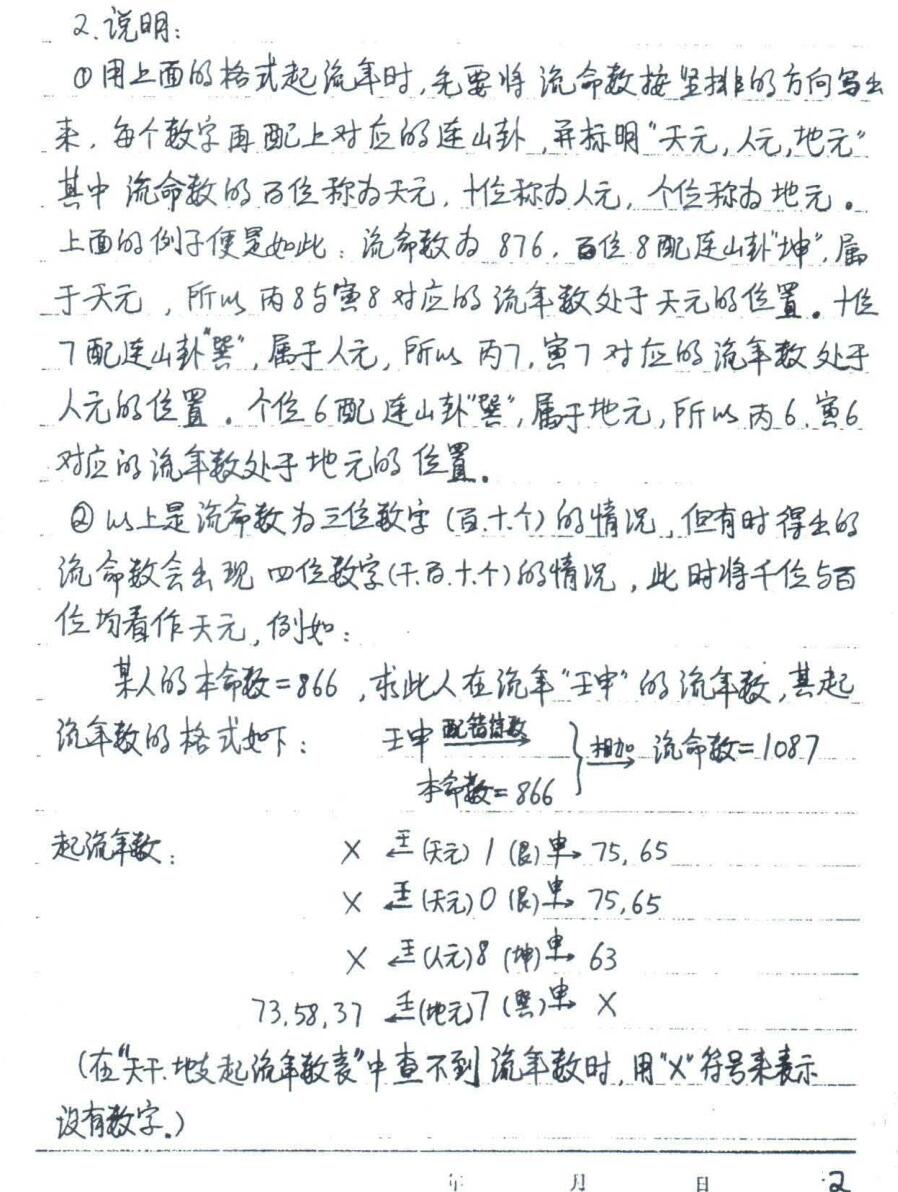 2.说明:
①用上面的格式起流年时,先要将流命数按竖排的方向写出
来,每个数字再配上对应的连山卦,并标明“天元,人元,地元”
其中流命数的百位称为天元,十位称为人元,个位称为地元。
上面的例子便是如此:流命数为876,百位8配连山卦“坤”,属
于天元,所以丙8与寅8对应的流年数处于天元的位置。十位
7配连山卦“巽”,属于人元,所以丙7,寅7对应的流年数处于
人元的位置。个位6配连山卦“巽”,属于地元,所以丙6.寅6
对应的流年数处于地元的位置。
②以上是流命数为三位数字(百.十.个)的情况,但有时得出的
流命数会出现四位数字(千.百.十.个)的情况,此时将千位与百
位均看作天元,例如:
某人的本命数=866,求此人在流年“壬申”的流年数,其起
流年数的格式如下: 壬申 配错综数 } 相加 流命数=1087
本命数=866
起流年数: X 壬 (天元) 1 (艮) 申 75,65
X 壬 (天元) 0 (艮) 申 75,65
X 壬 (人元) 8 (坤) 申 63
73,58,37 壬 (地元) 7 (巽) 申 X
(在“天干.地支起流年数表”中查不到流年数时,用“X”符号来表示
没有数字。)
年 月 日 2